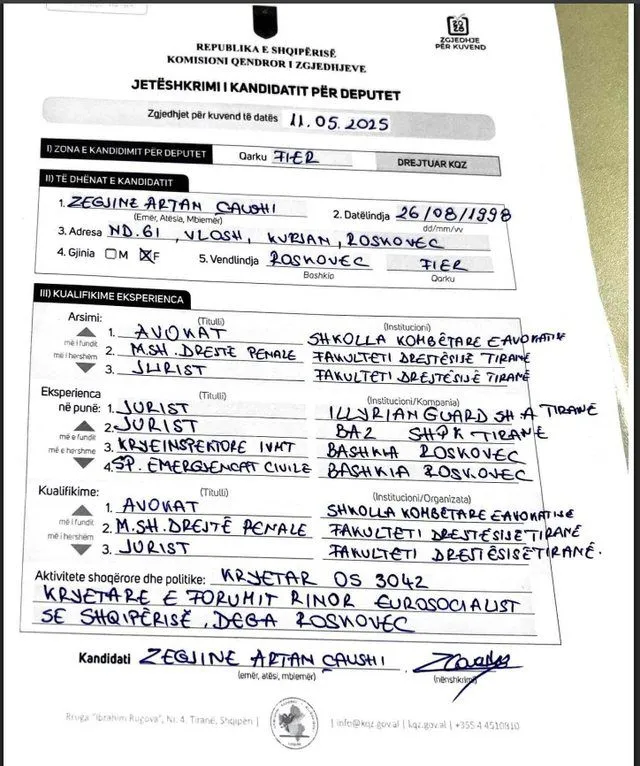 REPUBLIKA E SHQIPËRISË
KOMISIONI QENDROR I ZGJEDHJEVE
ZGJEDHJE
PËR KUVEND
JETËSHKRIMI I KANDIDATIT PËR DEPUTET
Zgjedhjet për kuvend të datës 11.05.2025
I) ZONA E KANDIDIMIT PËR DEPUTET Qarku FIER DREJTUAR KQZ
II) TË DHËNAT E KANDIDATIT
1. ZEGJINE ARTAN ÇAUSHI 2. Datëlindja 26/08/1998
(Emër, Atësia, Mbiemër) dd/mm/vv
3. Adresa ND.61, VLOSH, KURJAN, ROSKOVEC
4. Gjinia M F 5. Vendlindja ROSKOVEC FIER
Bashkia Qarku
III) KUALIFIKIME EKSPERIENCA
Arsimi: (Titulli) (Institucioni)
1. AVOKAT SHKOLLA KOMBËTARE E AVOKATISË
më i fundit
2. M.SH. DREJTË PENALE FAKULTETI DREJTËSISË TIRANË
më i hershëm
3. JURIST FAKULTETI DREJTËSISË TIRANË
Eksperienca (Titulli) (Institucioni/Kompania)
në punë: 1. JURIST ILLYRIAN GUARD SH.A TIRANË
2. JURIST BA2 SHPK TIRANË
më e fundit
3. KRYEINSPEKTORE IVMT BASHKIA ROSKOVEC
më e hershme
4. SP. EMERGJENCAT CIVILE BASHKIA ROSKOVEC
Kualifikime: (Titulli) (Institucioni/Organizata)
1. AVOKAT SHKOLLA KOMBËTARE E AVOKATISË
më i fundit
2. M.SH. DREJTË PENALE FAKULTETI DREJTËSISË TIRANË
më i hershëm
3. JURIST FAKULTETI DREJTËSISË TIRANË.
Aktivitete shoqërore dhe politike: KRYETAR OS 3042
KRYETARE E FORUMIT RINOR EUROSOCIALIST
SË SHQIPËRISË, DEGA ROSKOVEC
Kandidati ZEGJINE ARTAN ÇAUSHI
(emër, atësi, mbiemër) (nënshkrimi)
Rruga "Ibrahim Rugova", Nr. 4, Tiranë, Shqipëri | | info@kqz.gov.al | kqz.gov.al | +355 4 4510810